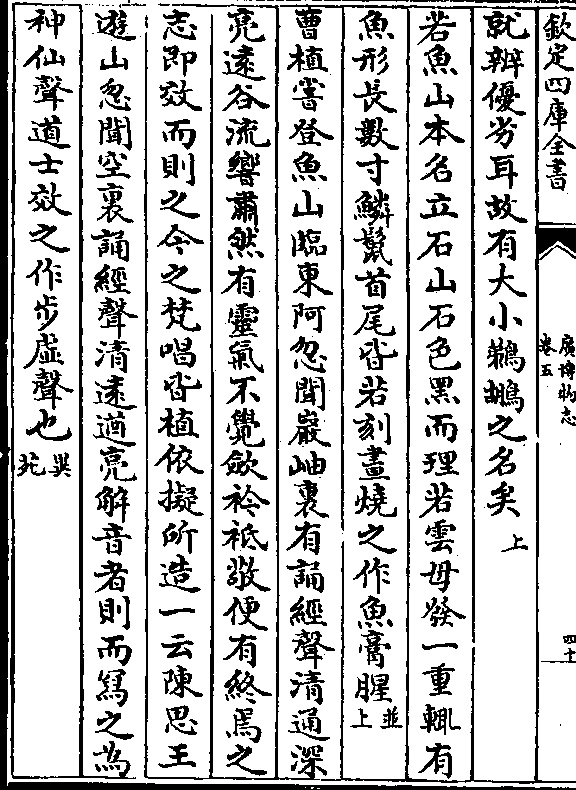 欽定四庫全書
廣博物志
卷五
四十
就辨優劣耳故有大小鵜鶘之名矣上
若魚山本名立石山石色黑而理若雲母發一重輒有
魚形長數寸鱗鬛首尾皆若刻畫燒之作魚膏腥並上
曹植嘗登魚山臨東阿忽聞巖岫裏有誦經聲清通深
亮遠谷流響肅然有靈氣不覺歛衿祗敬便有終焉之
志即效而則之今之梵唱皆植依擬所造一云陳思王
遊山忽聞空裏誦經聲清遠遒亮解音者則而寫之為
神仙聲道士效之作步虛聲也異苑